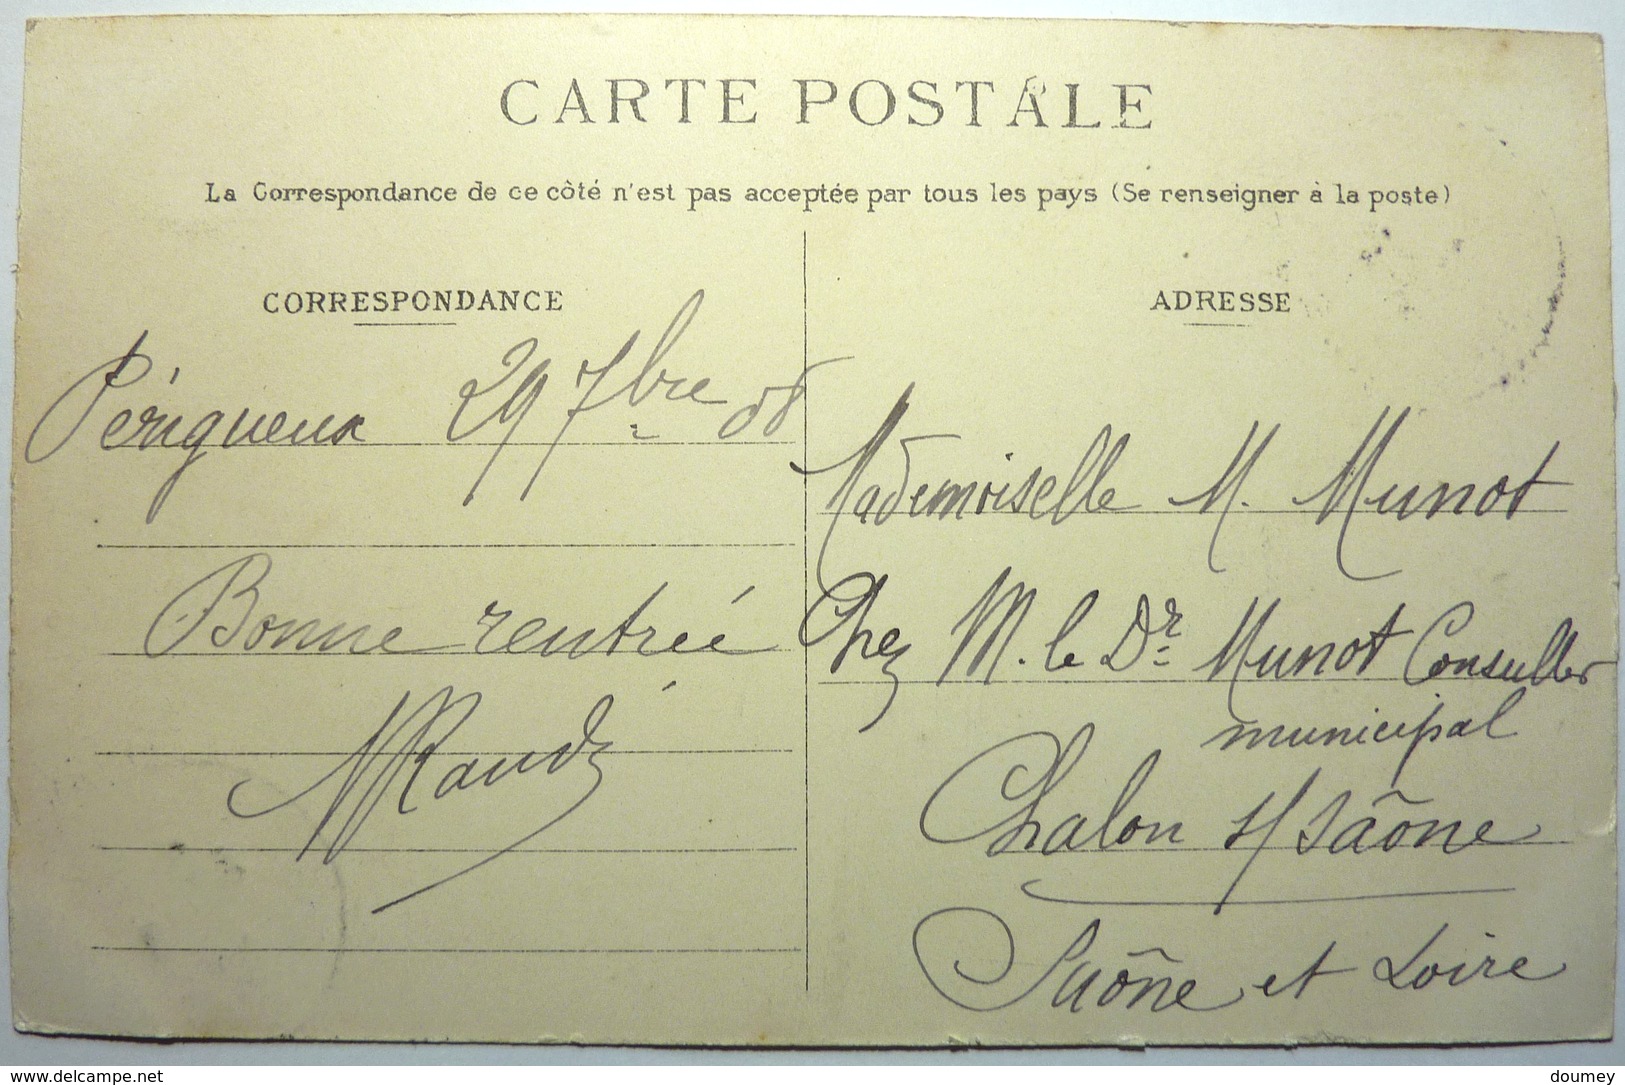 CARTE POSTALE
La Correspondance de ce côté n'est pas acceptée par tous les pays (Se renseigner à la poste)
CORRESPONDANCE
Périgueux 29 7bre 08
Bonne rentrée
ADRESSE
Mademoiselle M. Munot
Chez M. le Dr Munot Conseiller
municipal
Chalon s/Saône
Saône et Loire
doumey